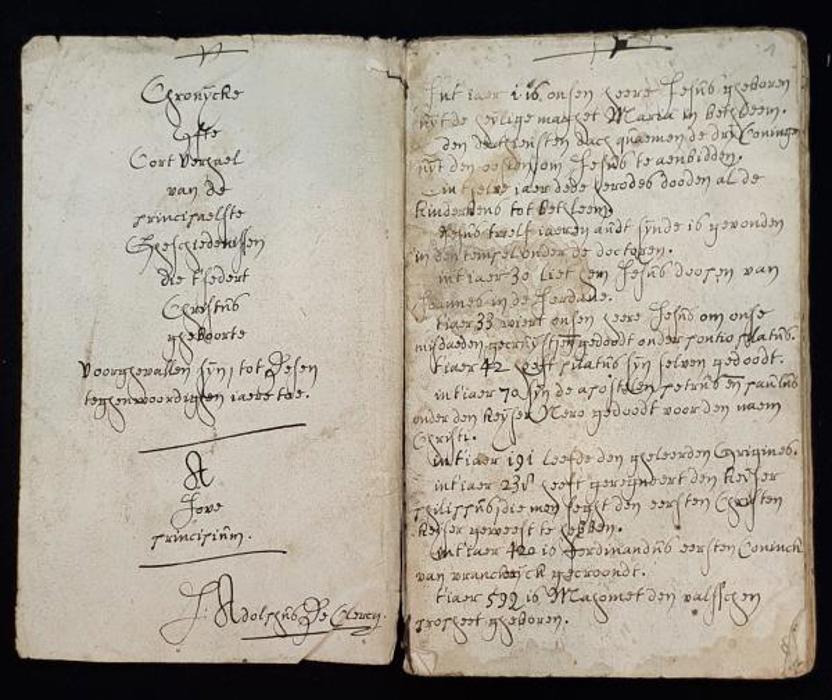 Chronijcke
Ofte
Cort Verhael
van de
principaelste
Gheschiedenissen
die t'sedert
Christus
gheboorte
Voorgevallen sijn, tot Desen
teghenwoordighen iaere toe.
A
Jove
principium.
J. Adolphus De Clercq.
1
Int iaer 1 is onsen heere Jesus gheboren
uyt de heylige maghet Maria in bethleem.
den derthiensten dach quaemen de drij Coninge
uyt den oosten om Jesus te aenbidden.
int selve iaer dede herodes dooden al de
kinderkens tot bethleem.
Jesus twelf iaeren audt sijnde is gevonden
in den tempel onder de doctoren.
int iaer 30 liet hem Jesus doopen van
Joannes in de Jordane.
tiaer 33 wiert onsen heere Jesus om onse
misdaeden gecruijst en gedoodt onder pontio pilatus.
tiaer 42 heeft pilatus sijn selven gedoodt.
int iaer 70 sijn de apostelen petrus en paulus
onder den keyser Nero gedoodt voor den naem
Christi.
int iaer 191 leefde den gheleerden Origines.
int iaer 238 heeft geregneert den keyser
philippus die men seght den eersten Christen
keyser geweest te hebben.
int iaer 420 is Ferdinandus eersten Coninck
van vranckrijck gecroondt.
tiaer 592 is Mahomet den valsschen
propheet gheboren.